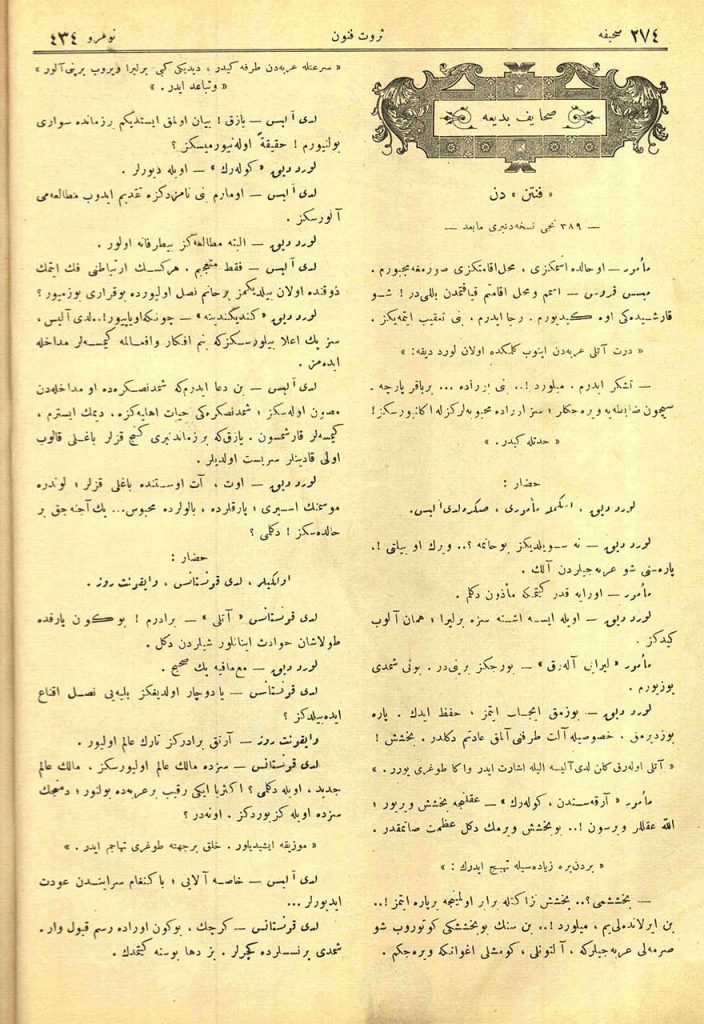 صحیفه ٢٧٤
ثروت فنون
نومرو ٤٣٤
صحایف بدیعه
« فنتن » دن
— ٣٨٩ نجی نسخه‌دنبری مابعد —
مأمور — او حالده اسمكزی ، محل اقامتكزی صورمغه مجبورم .
میس قروس — اسمم و محل اقامتم قیافتمدن بللی‌در ! شو
قارشیده‌كی اوه كیدیورم . رجا ایدرم ، بنی تعقیب ایتمه‌یكز .
« درت آتلی عربه‌دن اینوب كلمكده اولان لورد دیقه : »
— تشكر ایدرم ، میلورد !.. بنی بر آراده ... بر باقر پارچه
سیچون ضابطه‌یه ویره‌جكلر ؛ سز آراده محبوبه‌لركزله اكلنیورسكز !
« حدتله كیدر . »
حضار :
لورد دیق ، اسكمله مأموری ، صكره لدی آلیس.
لورد دیق — نه سویلدیكز بو خانمه ؟.. ویرك او بیانی !.
پاره‌سنی شو عربه‌جیلردن آلك .
مأمور — اورایه قدر كیتمكه مأذون دكلم .
لورد دیق — اویله ایسه اشته سزه بر لیرا ؛ همان آلوب
كیدكز .
مأمور « لیرایی آله‌رق » — بورجكز بر پنی‌در . بونی شمدی
بوزیورم .
لورد دیق — بوزمق ایجاب ایتمز ، حفظ ایدك . پاره
بوزدیرمق . خصوصیله آلت طرفنی آلمق عادتم دكلدر . بخشش !
« آتلی اوله‌رق كلن لدی آلیسه الیله اشارت ایدر و اكا طوغری یورر . »
مأمور « آرقه‌سندن ، كوله‌رك » — عقلنجه بخشش ویریور ؛
الله عقللر ویرسون !.. بو بخشش ویرمك دكل عظمت صاتمقدر .
« بردن بره زیاده‌سیله تهییج ایدرك : »
— بخششمی ؟.. بخشش نزاكتله برابر اولمینجه بر پاره ایتمز !..
بن ایرلانده‌لی‌یم ، میلورد !.. بن سنك بو بخششكی كوتوروب شو
صرمه‌لی عربه‌جیلركه ، آلتونلی ، كومشلی اغواتكه ویره‌جكم .
« سرعتله عربه‌دن طرفه كیدر ، دیدیكی كبی بر لیرا ویروب بر پنی آلور »
« و تباعد ایدر . »
لدی آلیس — یازق ! بیان اولمق ایستدیكم بر زمانده سواری
بولنیورم ! حقیقةً اوله‌نیورمیسكز ؟
لورد دیق « كوله‌رك » — اویله دیورلر .
لدی آلیس — اومارم بنی نامزدكزه تقدیم ایدوب مطالعه‌می
آلورسكز .
لورد دیق — البته مطالعه‌كز بیطرفانه اولور .
لدی آلیس — فقط متعجبم ، هركسك ارتباطنی فك ایتمك
ذوقنده اولان بیلدیكمز بر خانم نصل اولیورده بو قراری بوزمیور ؟
لورد دیق « كندیكندینه » — چونكه او یاپیور !.. لدی آلیس ،
سز پك اعلا بیلورسكز كه بنم افكار و افعالمه كیمسه‌لر مداخله
ایده‌مز .
لدی آلیس — بن دعا ایدرم كه شمدنصكره‌ده او مداخله‌دن
مصون اوله‌سكز ؛ شمدنصكره‌كی حیات اهلیه‌كزه ، دیمك ایسترم ،
كیمسه‌لر قارشمسون . یازق كه بر زماندنبری كنج قزلر باغلی قالوب
اولی قادینلر سربست اولدیلر .
لورد دیق — اوت ، آت اوستنده باغلی قزلر ؛ لوندره
موسمنك اسیری ؛ پارقلرده ، بالولرده محبوس... پك آجنه‌جق بر
حالده‌سكز ! دكلمی ؟
حضار :
اولكیلر ، لدی قونستانس ، وایقونت روز .
لدی قونستانس « آتلی » — برادرم ! بو كون پارقده
طولاشان حوادث اینانلور شیلردن دكل .
لورد دیق — مع‌مافیه پك صحیح .
لدی قونستانس — یا دوچار اولدیغكز بلیه‌یی نصل اقناع
ایده‌بیلدكز ؟
وایقونت روز — آرتق برادركز تارك عالم اولیور .
لدی قونستانس — سزده مالك عالم اولیورسكز . مالك عالم
جدید ، اویله دكلمی ؟ اكثریا ایكی رقیب بر عربه‌ده بولنور ؛ دمنجك
سزده اویله كزیوردكز . او نه‌در ؟
« موزیقه ایشیدیلور . خلق بر جهته طوغری تهاجم ایدر . »
لدی آلیس — خاصه آلایی ؛ باكنغام سرایندن عودت
ایدیورلر ...
لدی قونستانس — كرچك ، بوكون اوراده رسم قبول وار .
شمدی پرنسسلرده كچرلر . بز دها یوسنه كیتمدك .